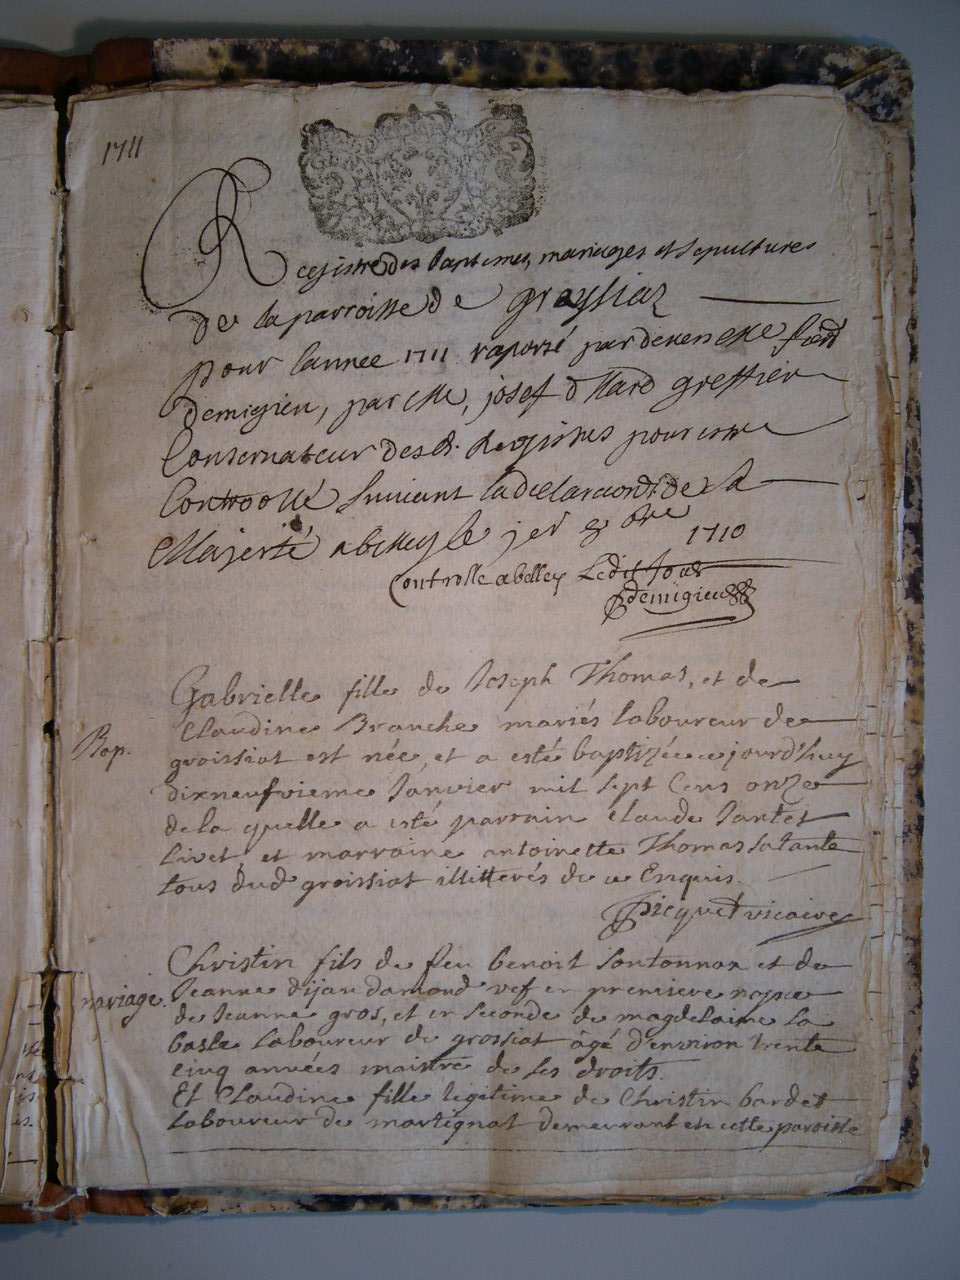 1711
Registre des baptemes, mariages et sepultures
de la parroisse de Groyssiaz
pour lannee 1711 raporté pardeven Me
demigieu, par Me, josef greffier
Conservateur desd. Registres pour estre
Controollé suivant la declaraont de Sa
Majesté a belley le jer 8 bre
1710
Controlle a belley Ledit Jour
demigieu
Bap.
Gabrielle fille de Joseph Thomas, et de
Claudine Branche mariés laboureur de
groissiat est née, et a esté baptizée ce jourd'huy
dixneufvieme Janvier mil sept Cens onze
de la quelle a esté parrain Claude
Livet et marraine antoinette Thomas sa tante
tous dud groissiat illitterés de ce Enquis.
Picquet vicaire
mariage.
Christin fils de feu benoit Sontonnax et de
Jeanne dijan damond vef en premiere nopce
de Jeanne gros, et en seconde de magdelaine la
basle laboureur de grossiat âgé d'environ trente
cinq années maistre de ses droits.
Et Claudine fille legitime de Christin bardet
laboureur de martignat demeurant en cette paroisse